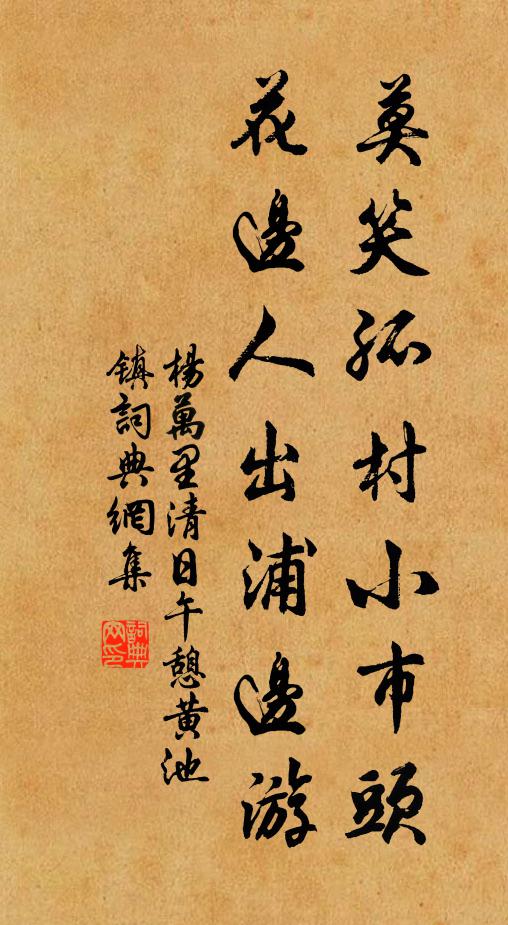 莫笑孤村小市頭
花邊人出浦邊游
楊萬里清日午憩黄池
镇詞典網集
詞典网印